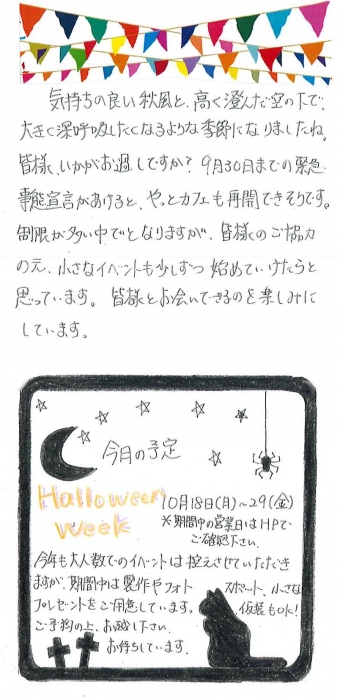 気持ちの良い秋風と、高く澄んだ空の下で、
大きく深呼吸したくなるような季節になりましたね。
皆様、いかがお過しですか？9月30日までの緊急
事態宣言があけると、やっとカフェも再開できそうです。
制限が多い中でとなりますが、皆様のご協力
のえ、小さなイベントも少しずつ始めていけたらと
思っています。皆様とお会いできるのを楽しみに
しています。
今月の予定
Halloween
Week
10月18日(月)〜29(金)
※期間中の営業日はHPで
ご確認下さい。
今年も大人数でのイベントは控えさせていただき
ますが、期間中は製作やフォト
スポット、小さな
プレゼントをご用意しています。
仮装もOK!
ご予約の上、お越し下さい。
お待ちしています。